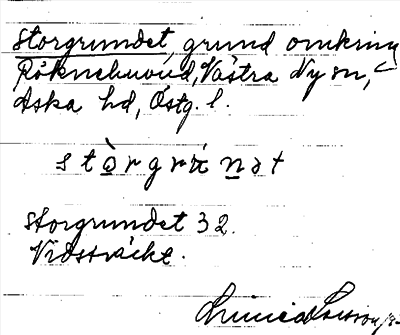 Storgrundet, grund omkring
Röknehuvud, Västra Ny sn,
Aska hd, Östg. l.
stòrgrúnət
Storgrundet 32.
Vidsträckt.
Linnéa Larsson